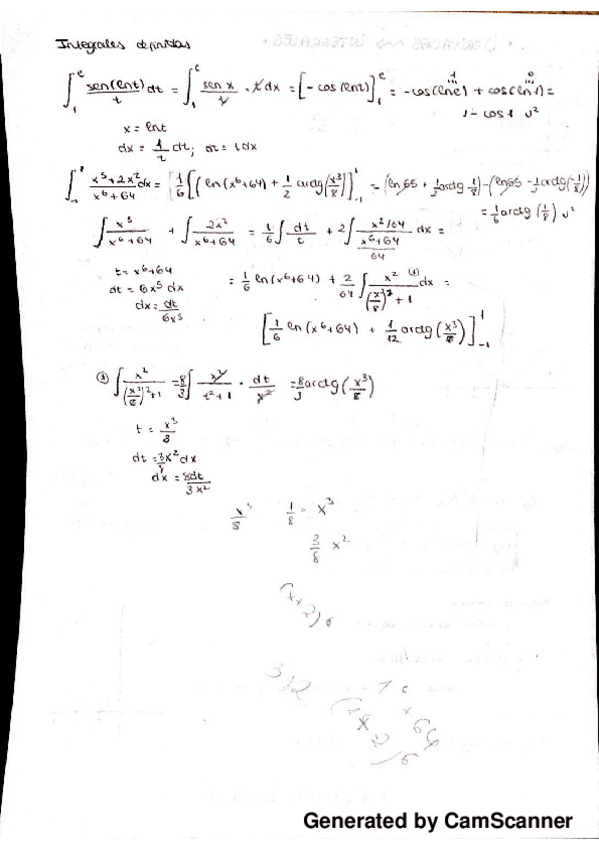 Integrales definidas
∫₁ᵉ sen(lnt)/t dt = ∫₁ᵉ sen x/t · t dx = [-cos(lnt)]₁ᵉ = -cos(lne) + cos(ln1) =
1 - cos1 u²
x = lnt
dx = 1/t dt;
∫₋₁¹ (x⁵+2x²)/(x⁶+64) dx = [1/6 (ln(x⁶+64) + 1/2 arctg(x³/8))]₋₁¹ = (ln65 + 1/2 arctg 1/8) - (ln65 - 1/2 arctg(-1/8))
= 1/6 arctg(1/8) u²
∫ x⁵/(x⁶+64) + ∫ 2x²/(x⁶+64) = 1/6 ∫ dt/t + 2∫ (x²/64)/((x⁶+64)/64) dx =
t = x⁶+64
dt = 6x⁵ dx
dx = dt/6x⁵
= 1/6 ln(x⁶+64) + 2/64 ∫ x²/((x³/8)²+1) dx =
[1/6 ln(x⁶+64) + 1/12 arctg(x³/8)]₋₁¹
∫ x²/((x³/8)²+1) = 8/3 ∫ x²/(t²+1) · dt/x² = 8/3 arctg(x³/8)
t = x³/8
dt = 3/8 x² dx
dx = 8dt/3x²
x³/8 1/8 · x³
3/8 x²
Generated by CamScanner